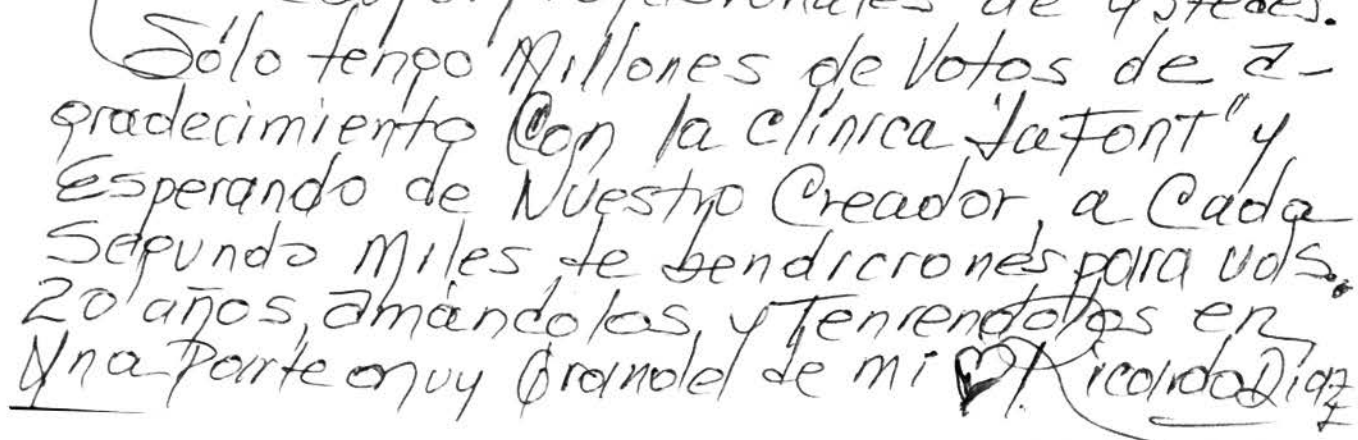 profesionales de ustedes.
Sólo tengo Millones de Votos de a-
gradecimiento Con la clínica "LaFont" y
Esperando de Nuestro Creador, a Cada
Segundo Miles de bendiciones para uds.
20 años, amándolos, y Teniendolos en
Una Parte muy Grande de mi ♡! Ricardo Díaz